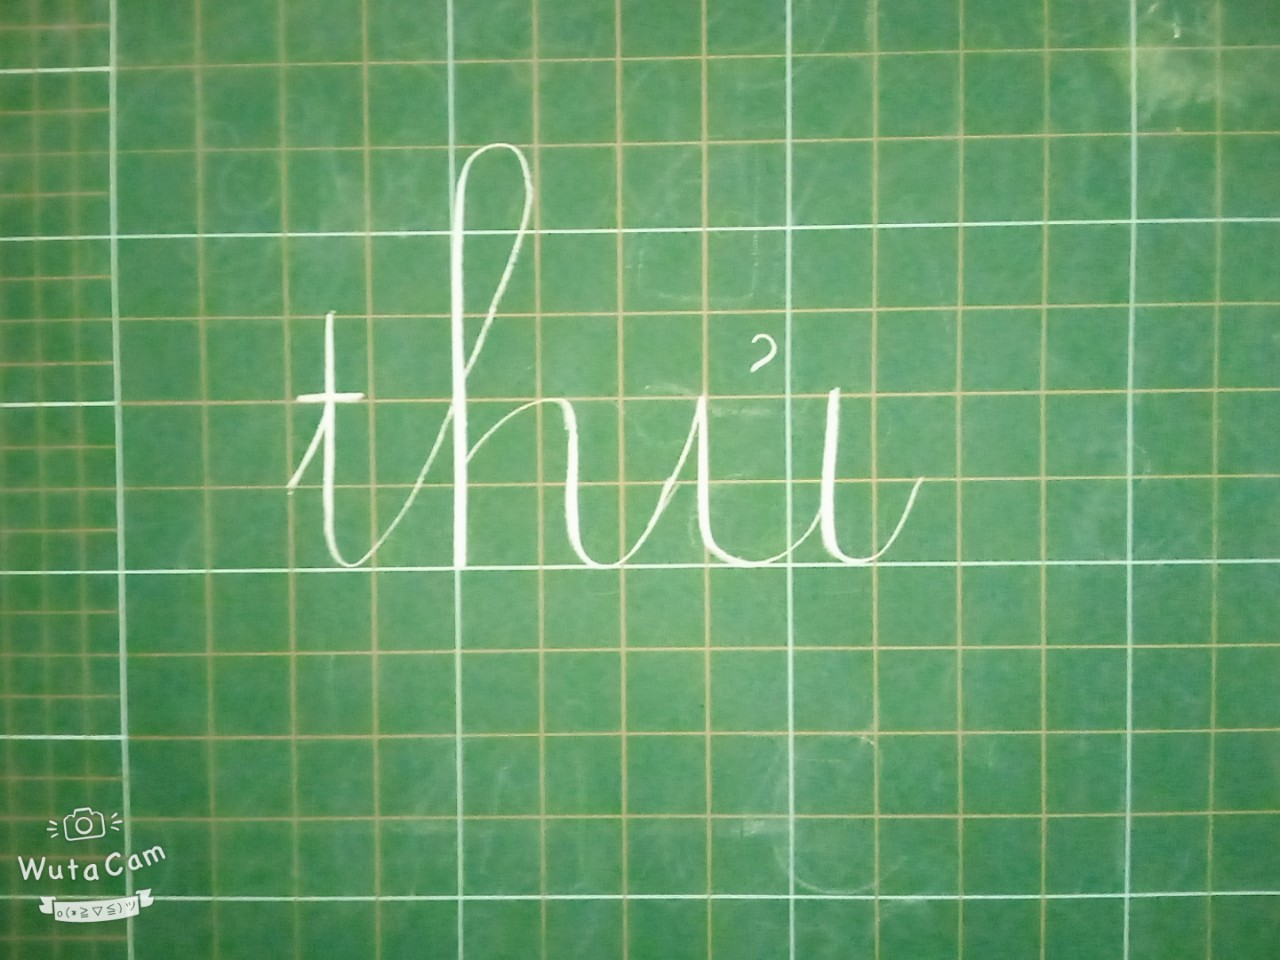 thủ
WutaCam
o(*≧▽≦)ツ